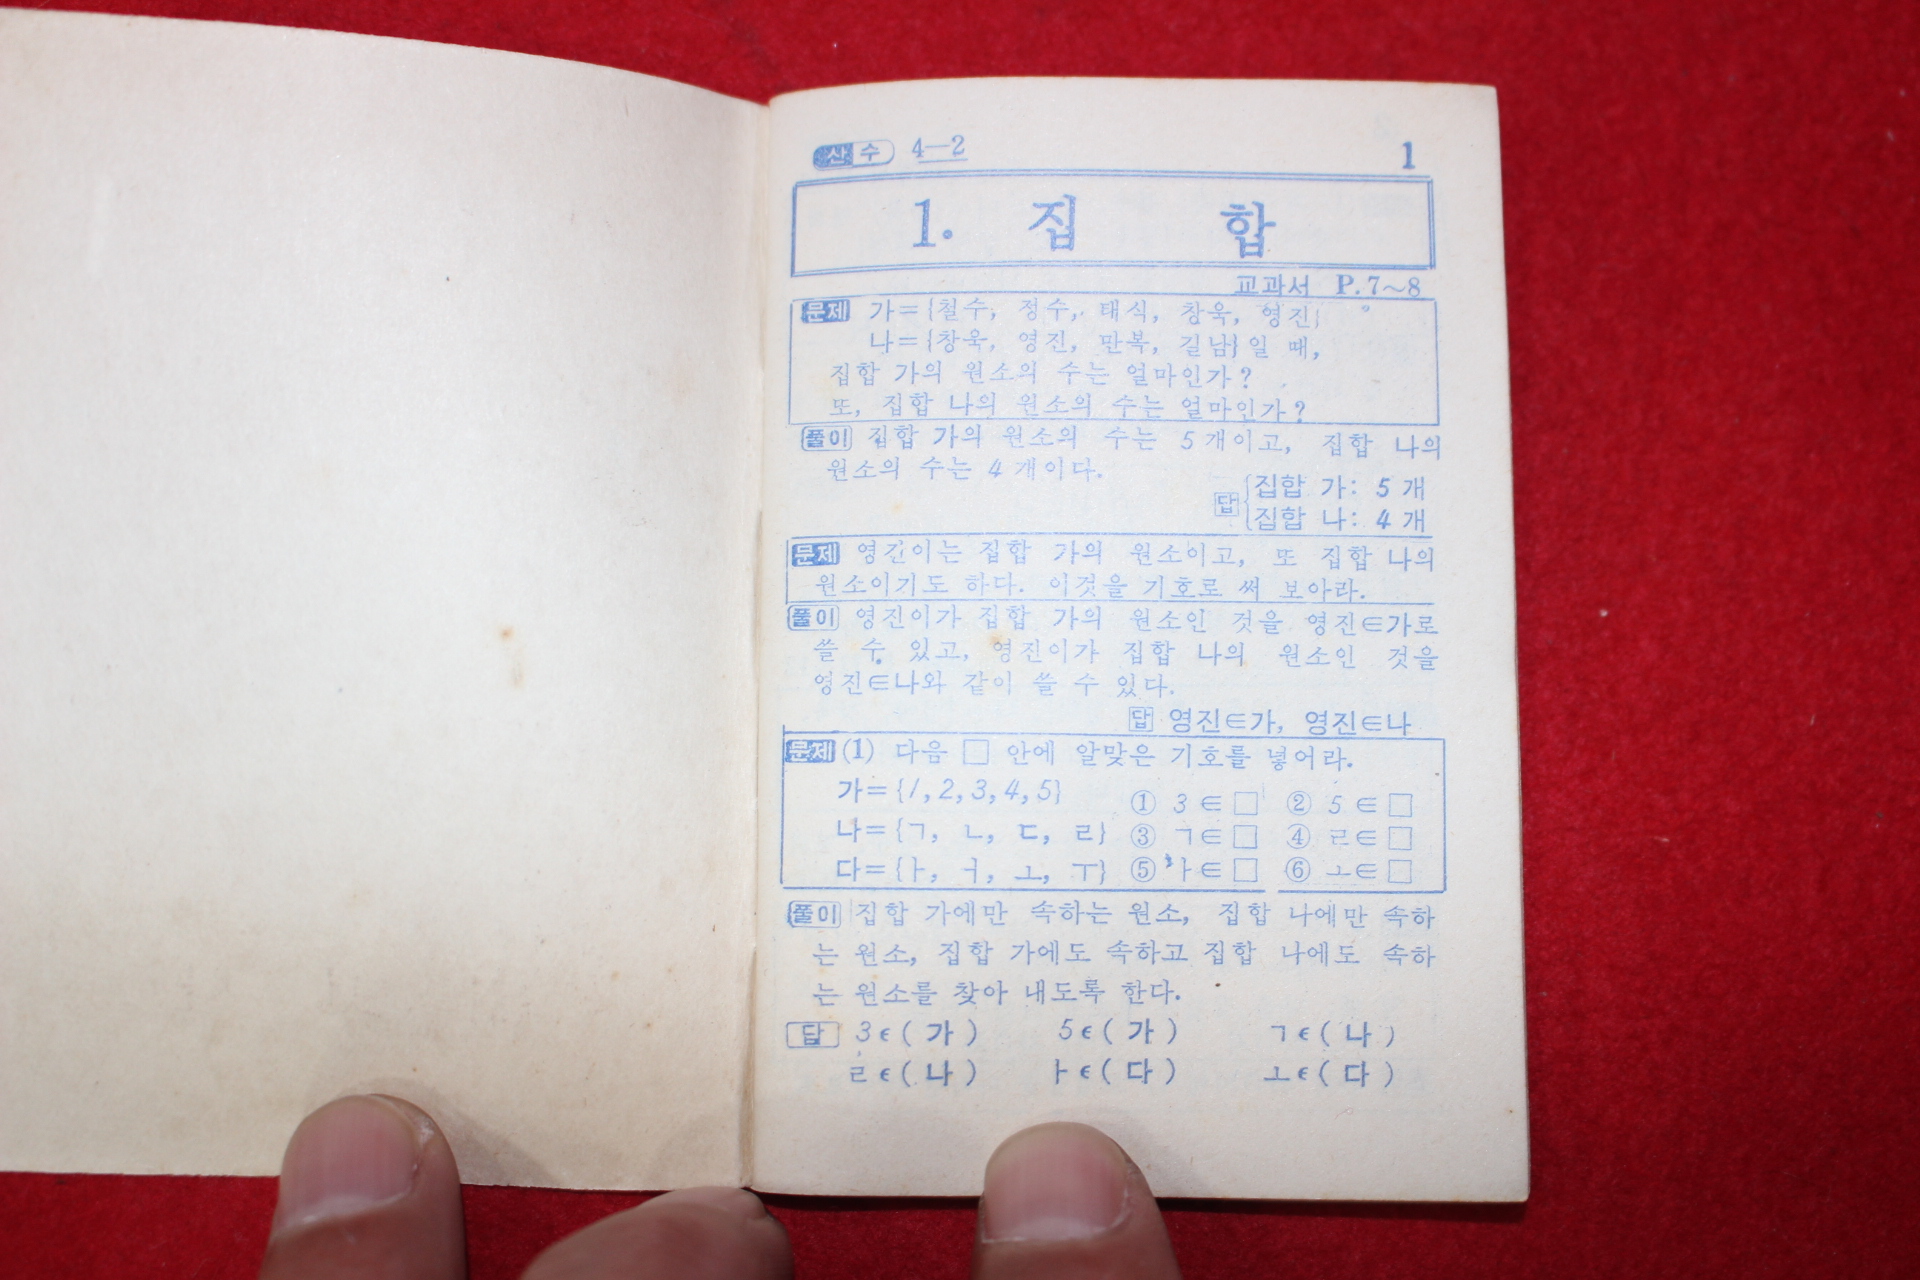 산수 4—2
1
1. 집 합
교과서 P.7~8
문제 가={철수, 정수, 태식, 창욱, 영진}
나={창욱, 영진, 만복, 길남}일 때,
집합 가의 원소의 수는 얼마인가?
또, 집합 나의 원소의 수는 얼마인가?
풀이 집합 가의 원소의 수는 5개이고, 집합 나의
원소의 수는 4개이다.
답 {집합 가: 5개
집합 나: 4개
문제 영진이는 집합 가의 원소이고, 또 집합 나의
원소이기도 하다. 이것을 기호로 써 보아라.
풀이 영진이가 집합 가의 원소인 것을 영진∈가로
쓸 수 있고, 영진이가 집합 나의 원소인 것을
영진∈나와 같이 쓸 수 있다.
답 영진∈가, 영진∈나
문제 (1) 다음 □ 안에 알맞은 기호를 넣어라.
가={1, 2, 3, 4, 5} ① 3∈□ ② 5∈□
나={ㄱ, ㄴ, ㄷ, ㄹ} ③ ㄱ∈□ ④ ㄹ∈□
다={ㅏ, ㅓ, ㅗ, ㅜ} ⑤ ㅏ∈□ ⑥ ㅗ∈□
풀이 집합 가에만 속하는 원소, 집합 나에만 속하
는 원소, 집합 가에도 속하고 집합 나에도 속하
는 원소를 찾아 내도록 한다.
답 3∈(가) 5∈(가) ㄱ∈(나)
ㄹ∈(나) ㅏ∈(다) ㅗ∈(다)